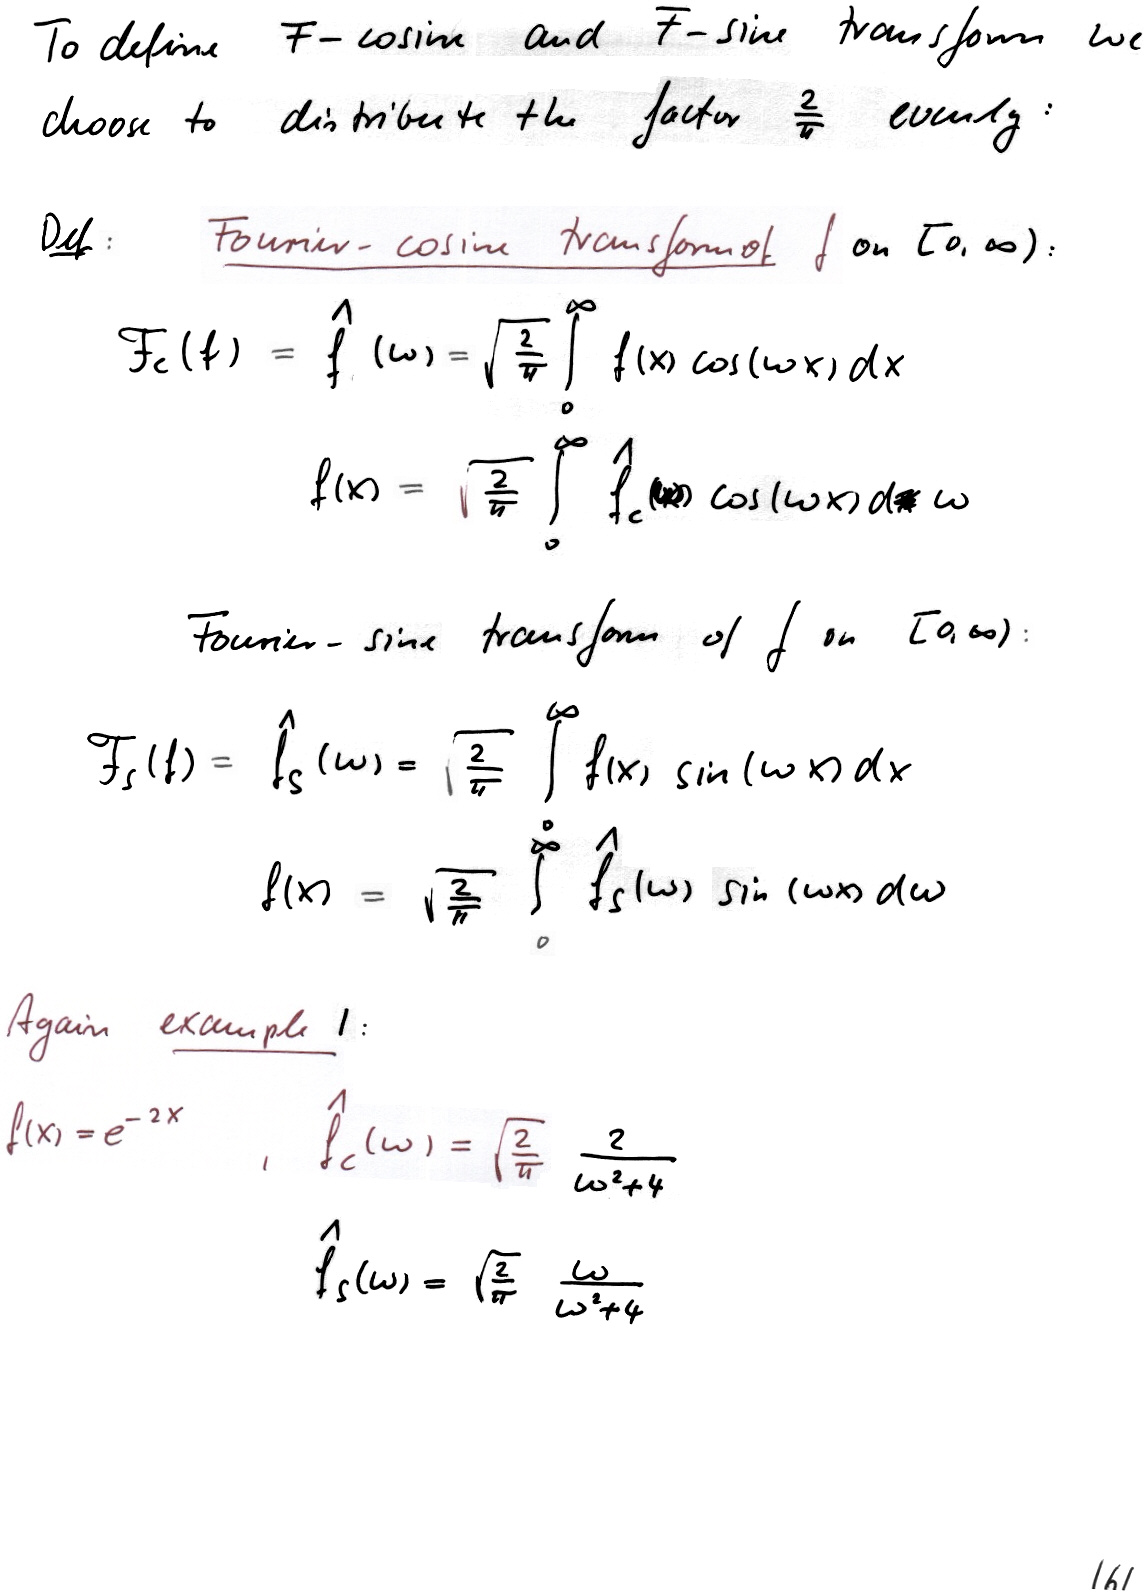 To define F-cosine and F-sine transform we
choose to distribute the factor 2/π evenly:
Def: Fourier-cosine transform of f on [0, ∞):
F_c(f) = f̂ (ω) = √(2/π) ∫₀^∞ f(x) cos(ωx) dx
f(x) = √(2/π) ∫₀^∞ f̂_c(ω) cos(ωx) dω
Fourier-sine transform of f on [0, ∞):
F_s(f) = f̂_s(ω) = √(2/π) ∫₀^∞ f(x) sin(ωx) dx
f(x) = √(2/π) ∫₀^∞ f̂_s(ω) sin(ωx) dω
Again example 1:
f(x) = e^{-2x} , f̂_c(ω) = √(2/π) 2/(ω²+4)
f̂_s(ω) = √(2/π) ω/(ω²+4)
161